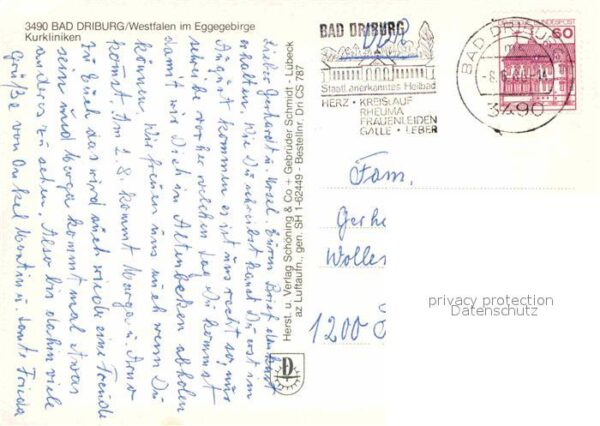 3490 BAD DRIBURG/Westfalen im Eggegebirge
Kurkliniken
Lieber Gerhardt u. Ursel. Euren Brief dankend
erhalten. Wie Du schreibst kannst Du erst im
August kommen es ist uns recht so, nur
schreibe vorher welchen Tag Du kommst
damit wir Dich in Altenbeken abholen
können. Wir freuen uns auch wenn Du
kommst. Am 2.8. kommt Marga u. Arno
zu Euch das wird auch wieder eine Freude
sein und Marga kommt mal etwas
anderes zu sehen. Also bis dahin viele
Grüße von Onkel Martin u. Tante Frieda
Herst. u. Verlag Schöning & Co + Gebrüder Schmidt · Lübeck
az Luftaufn., gen. SH 1-62449 - Bestellnr. Dri CS 787
BAD DRIBURG
Staatl. anerkanntes Heilbad
HERZ · KREISLAUF
RHEUMA
FRAUENLEIDEN
GALLE · LEBER
BAD DRIBURG
3490
DEUTSCHE BUNDESPOST
60
Fam.
Gerh
Wolles
1200
privacy protection
Datenschutz
D